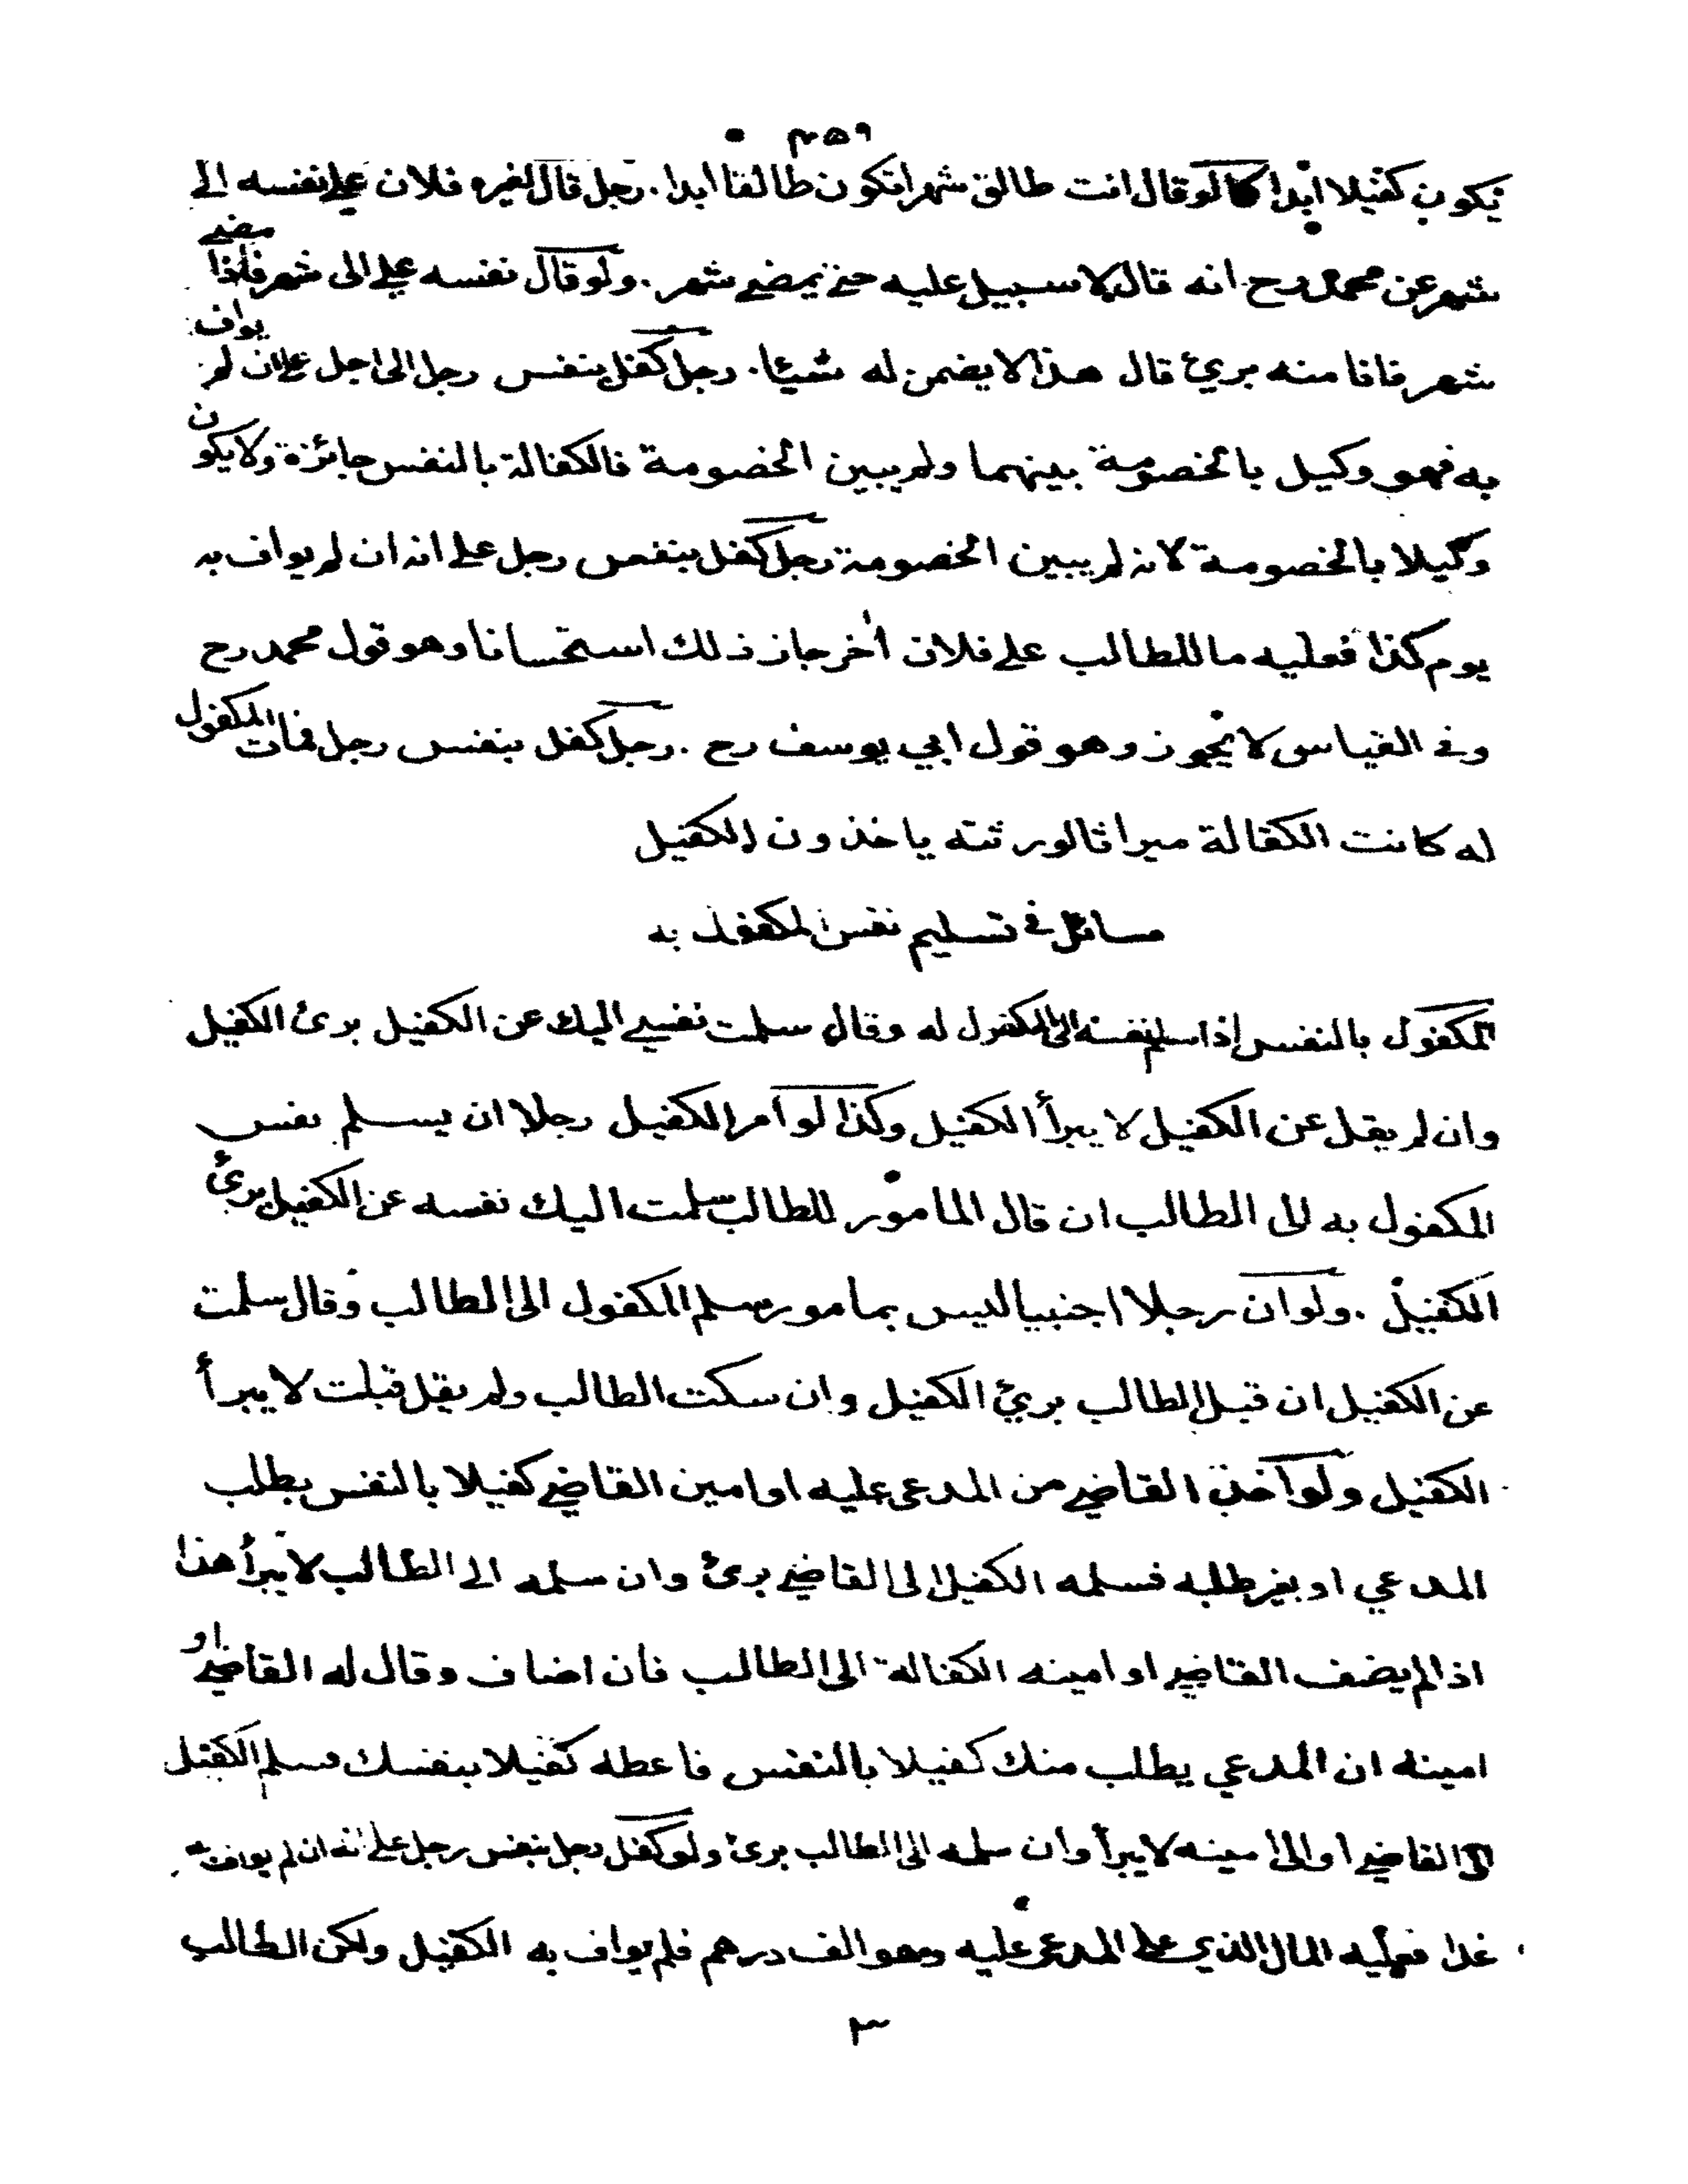 ٤٥٩
يكون كفيلا ابدا كما لو قال انت طالق شهرا تكون طالقا ابدا. رجل قال لغيره فلان علي نفسه الى
شهر عن محمد رح انه قال لا سبيل عليه حتى يمضي شهر. ولو قال نفسه علي الى شهر فاذا مضى
شهر فانا منه بريئ قال هذا لا يضمن له شيئا. رجل كفل بنفس رجل الى اجل على ان لم يواف
به فهو وكيل بالخصومة بينهما ولم يبين الخصومة فالكفالة بالنفس جائزة ولا يكون
وكيلا بالخصومة لانه لم يبين الخصومة رجل كفل بنفس رجل على انه ان لم يواف به
يوم كذا فعليه ما للطالب على فلان اخر جاز ذلك استحسانا وهو قول محمد رح
وفي القياس لا يجوز وهو قول ابي يوسف رح. رجل كفل بنفس رجل فمات المكفول
له كانت الكفالة ميراثا لورثته ياخذون الكفيل
مسائل في تسليم نفس المكفول به
المكفول بالنفس اذا سلم نفسه الى المكفول له وقال سلمت نفسي اليك عن الكفيل برئ الكفيل
وان لم يقل عن الكفيل لا يبرأ الكفيل وكذا لو امر الكفيل رجلا ان يسلم نفس
المكفول به الى الطالب ان قال المامور للطالب سلمت اليك نفسه عن الكفيل برئ
الكفيل. ولو ان رجلا اجنبيا ليس بمامور سلم المكفول الى الطالب وقال سلمت
عن الكفيل ان قبل الطالب بريئ الكفيل وان سكت الطالب ولم يقل قبلت لا يبرأ
الكفيل ولو اخذ القاضي من المدعى عليه او امين القاضي كفيلا بالنفس بطلب
المدعي او بغير طلبه فسلمه الكفيل الى القاضي برئ وان سلمه الى الطالب لا يبرأ هذا
اذا لم يضف القاضي او امينه الكفالة الى الطالب فان اضاف وقال له القاضي او
امينه ان المدعي يطلب منك كفيلا بالنفس فاعطه كفيلا بنفسك فسلم الكفيل
الى القاضي او الى امينه لا يبرأ وان سلمه الى الطالب برئ ولو كفل رجل بنفس رجل على انه ان لم يواف به
غدا فعليه المال الذي على المدعى عليه وهو الف درهم فلم يواف به الكفيل ولكن الطالب
٣